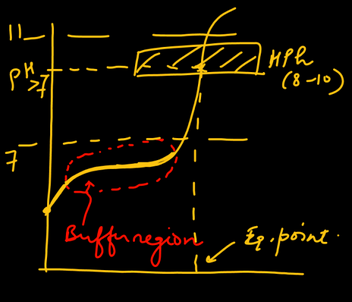 11
PH
>7
HPh
(8-10)
7
Buffer region
Eq. point.